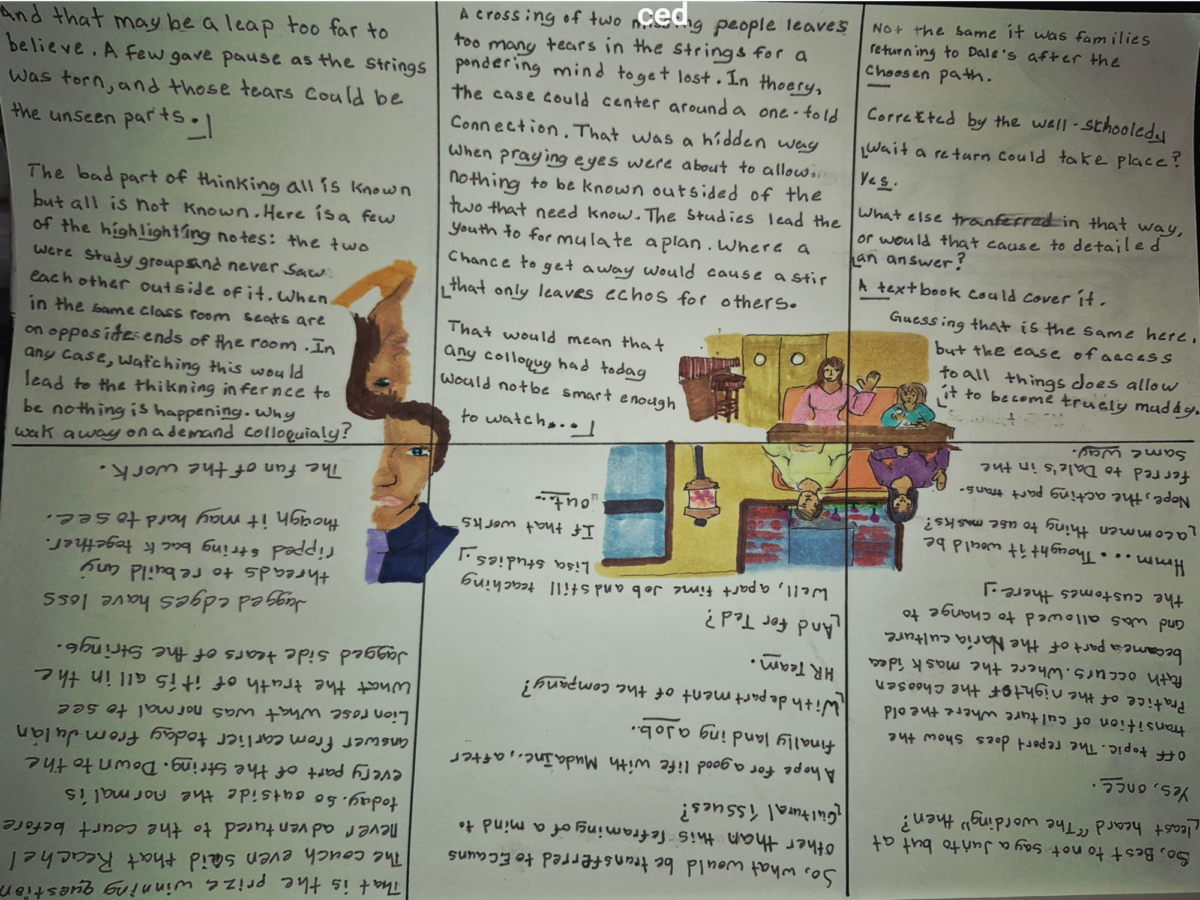 ced
And that may be a leap too far to
believe. A few gave pause as the strings
was torn, and those tears could be
the unseen parts.
The bad part of thinking all is known
but all is not known. Here is a few
of the highlighting notes: the two
were study groups and never saw
each other outside of it. When
in the same class room seats are
on opposite ends of the room. In
any case, watching this would
lead to the thikning infernce to
be nothing is happening. Why
walk away on a demand colloquialy?
A crossing of two missing people leaves
too many tears in the strings for a
pondering mind to get lost. In thoery,
the case could center around a one-told
connection. That was a hidden way
when praying eyes were about to allow..
nothing to be known outsided of the
two that need know. The studies lead the
youth to formulate a plan. Where a
chance to get away would cause a stir
that only leaves echos for others.
That would mean that
any colloquy had today
would not be smart enough
to watch...
Not the same it was families
returning to Dale's after the
choosen path.
Corrected by the well-schooledy
Wait a return could take place?
Yes.
What else tranferred in that way,
or would that cause to detailed
an answer?
A textbook could cover it.
Guessing that is the same here.
but the ease of access
to all things does allow
it to become truely muddy.
So, Best to not say a Junto but at
least heard "The wording" then?
Yes, once.
off topic. The report does show the
transition of culture where the old
Pratice of the night of the choosen
Path occurs. Where the mask idea
became a part of the Naria culture
and was allowed to change to
the customes there.
Hmm... Thought it would be
a commen thing to use masks?
Nope, the acting part trans-
ferred to Dale's in the
same way.
So, what would be transferred to Ecauns
other than this reframing of a mind to
Cultural issues?
A hope for a good life with Muda Inc., after
finally landing a job.
With department of the company?
HR Team.
And for Ted?
Well, apart time job and still teaching
Lisa studies.
If that works
out...
That is the prize winning question
The couch even said that Reachel
never adventured to the court before
today. So outside the normal is
every part of the string. Down to the
answer from earlier today from Julan
Lion rose what was normal to see
what the truth of it is all in the
Jagged side tears of the strings.
Jagged edges have loss
threads to rebuild any
ripped string back together.
though it may hard to see.
The fun of the work.